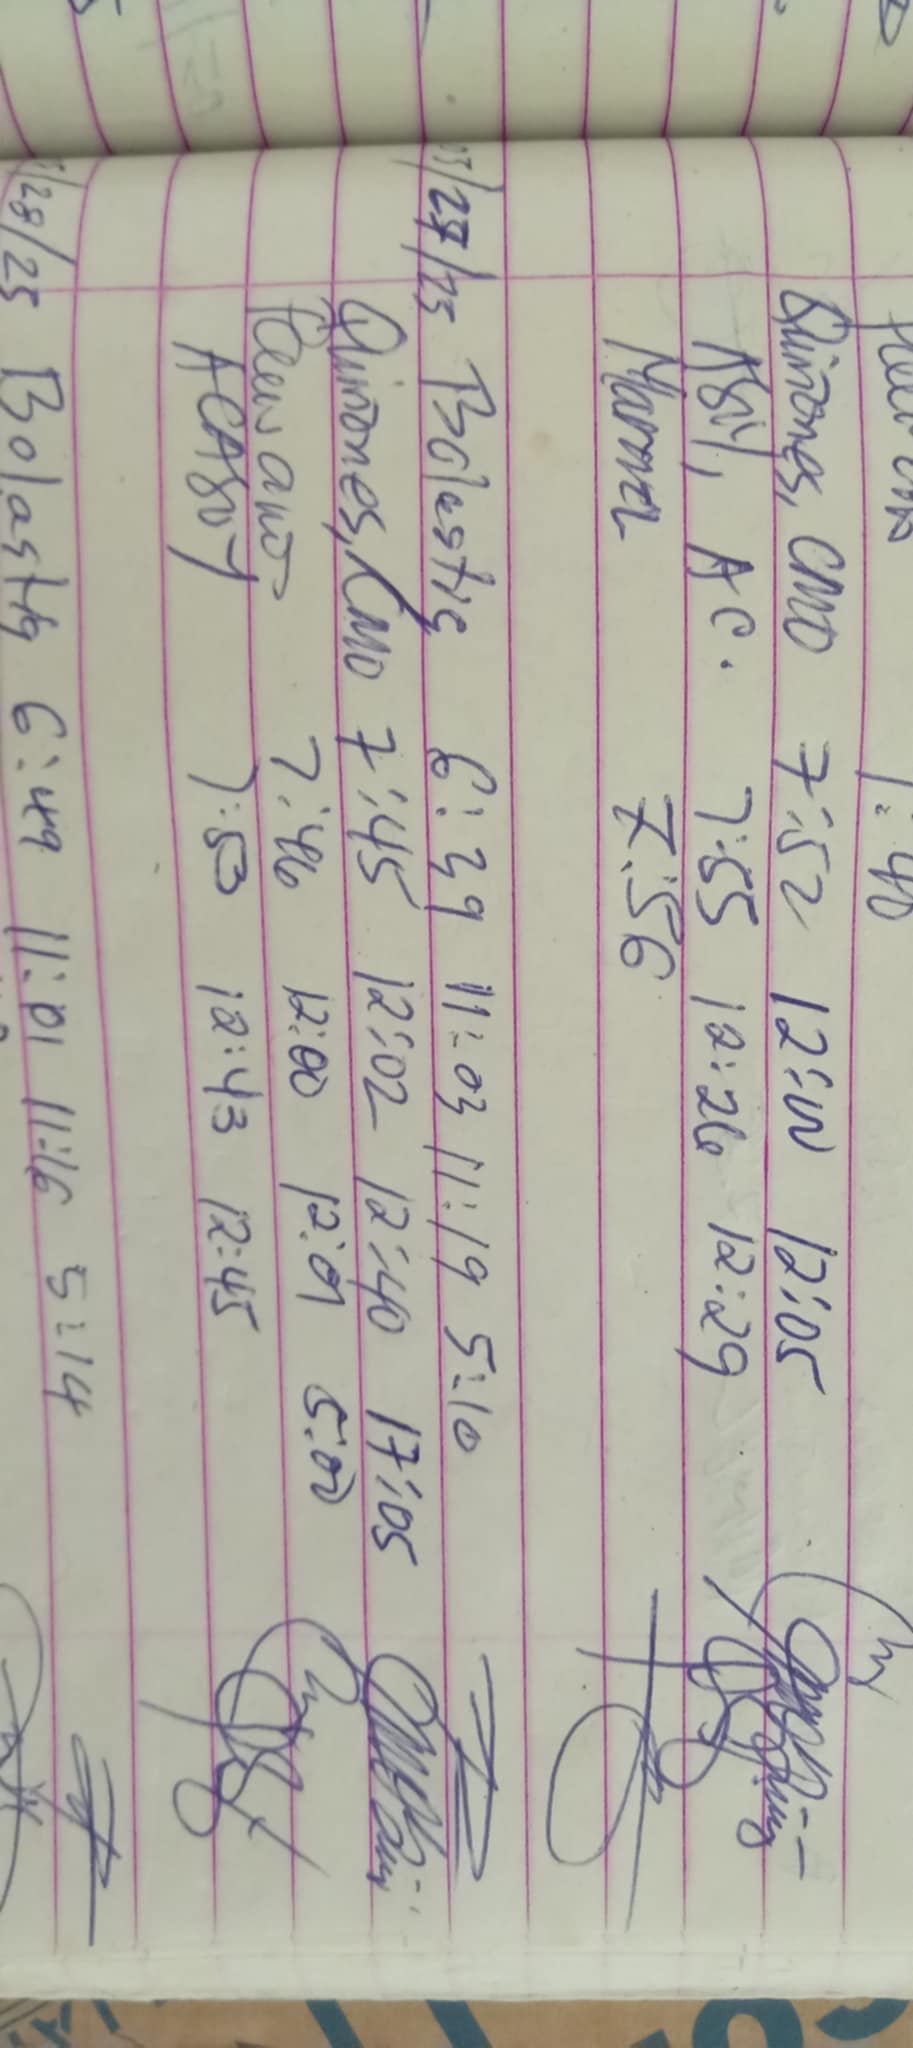 7:40
Quiñones, CMO 7:52 12:00 12:05
Asoy, AC. 7:55 12:26 12:29
7:56
/27/25 Bolastig 6:39 11:03 11:19 5:10
Quiñones, CMO 7:45 12:02 12:40 17:05
7:46 12:00 12:01 5:00
ACAsoy 7:53 12:43 12:45
/28/25 Bolastig 6:49 11:01 11:16 5:14